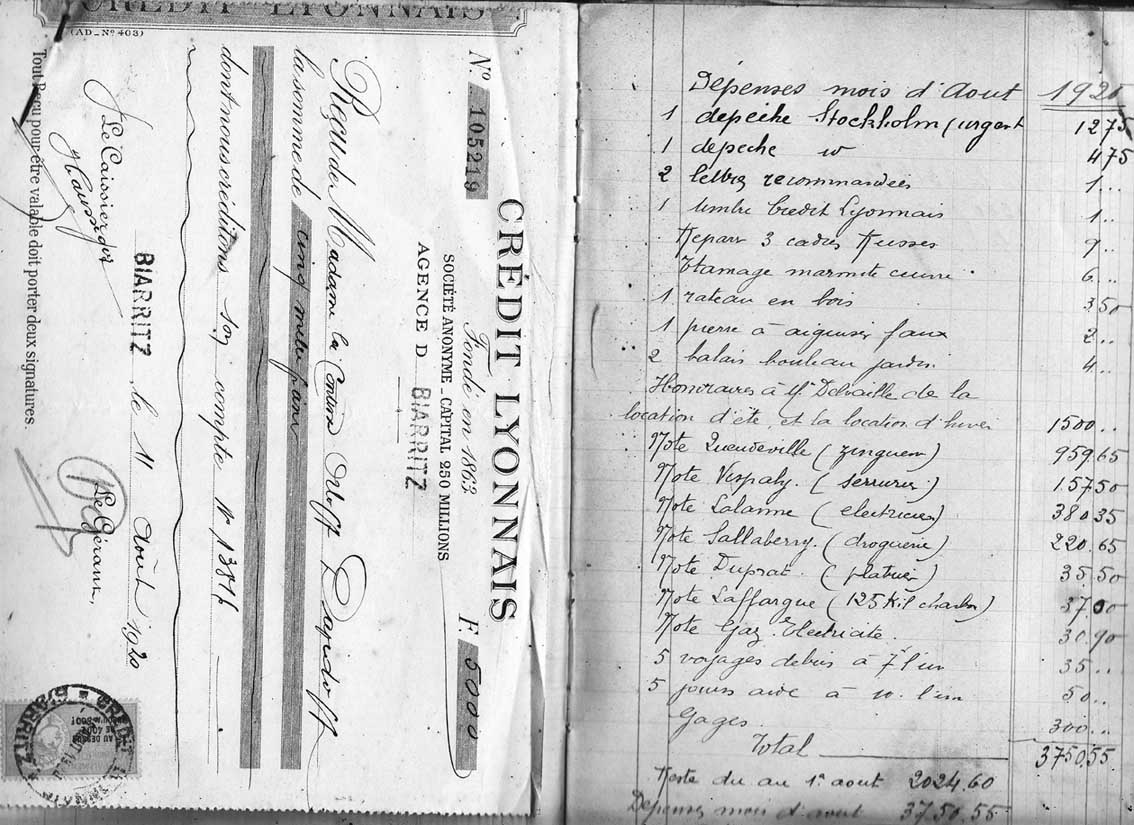 CRÉDIT LYONNAIS
(AD_Nº 403)
CRÉDIT LYONNAIS
Fondé en 1863
SOCIÉTÉ ANONYME _ CAPITAL 250 MILLIONS
AGENCE D BIARRITZ
Nº 105219 F. 5000
Reçu de Madame la Orloff Davidoff
la somme de cinq mille francs
dont nous créditons son compte Nº
BIARRITZ, le 11 Août 1920
Le Caissier, Le Gérant,
Tout Reçu pour être valable doit porter deux signatures.
Dépenses mois d'Aout 192
1 depêche Stockholm (urgent 1275
1 depeche 475
2 lettres recommandées 1...
1 timbre Credit Lyonnais 1..
Repar 3 cadres Russes 9..
Etamage marmite cuivre 6...
1 rateau en bois 350
1 pierre à aiguiser faux 2...
2 balais bouleau jardin 4...
Honoraires à Mr Delvaille de la
location d'été et la location d'hiver 1500..
Note Queudeville (zingueur) 959.65
Note (serrurier) 157.50
Note Lalanne (electricien) 380.35
Note Sallaberry. (droguerie) 220.65
Note Duprat. (platrier) 35.50
Note Laffargue (125 Kil charbon) 37.00
Note Gaz Electricité. 30.90
5 voyages debris à 7f l'un 35...
5 jours aide à 10. l'un 50..
Gages. 300...
Total 3750.55
Reste du au 1er aout 2024.60
Dépenses mois d'aout 3750.55